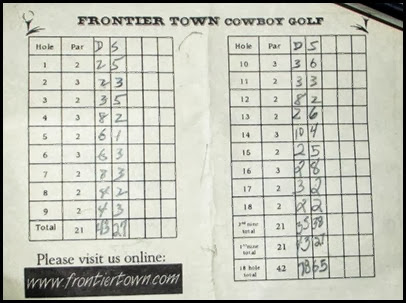 FRONTIER TOWN COWBOY GOLF
Hole Par D S
1 2 2 5
2 3 2 3
3 2 3 5
4 3 8 2
5 2 6 1
6 3 6 3
7 2 8 3
8 2 4 2
9 2 4 3
Total 21 43 27
Hole Par D S
10 3 3 6
11 2 3 3
12 2 8 2
13 2 2 6
14 3 10 4
15 2 2 5
16 3 2 8
17 2 3 2
18 2 2 2
2nd nine total 21 35 38
1st nine total 21 43 27
18 hole total 42 78 65
Please visit us online:
www.frontiertown.com